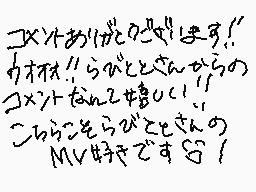 コメントありがとうございます!!
ウオオオ!!らびととさんからの
コメントなんて嬉しい!!
こちらこそらびととさんの
MV好きです!